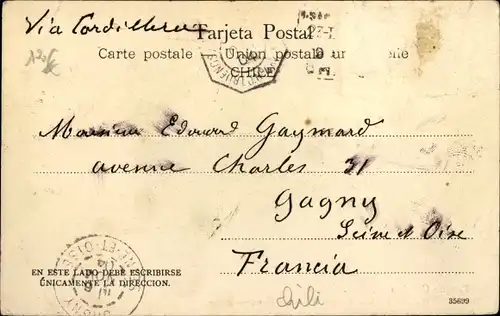 Via Cordillera
12,-€
Tarjeta Postal
Carte postale Union postale
CHILE
Monsieur Edouard Gaymard
avenue Charles 31
Gagny
Seine et Oise
Francia
EN ESTE LADO DEBE ESCRIBIRSE
ÚNICAMENTE LA DIRECCION.
Chili
35699